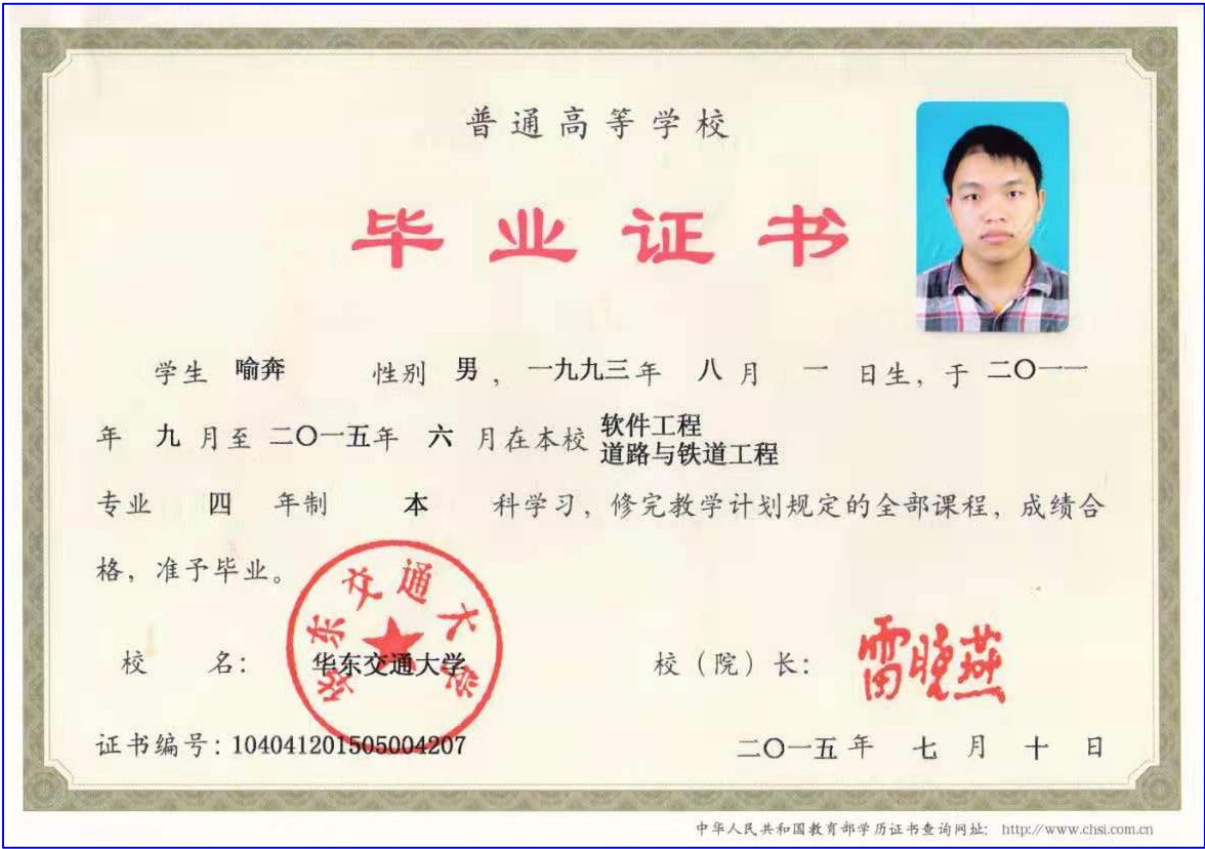 普通高等学校
毕业证书
学生 喻奔 性别 男，一九九三年 八 月 一 日生，于 二〇一一
年 九 月至 二〇一五年 六 月在本校 软件工程
道路与铁道工程
专业 四 年制 本 科学习，修完教学计划规定的全部课程，成绩合
格，准予毕业。
华东交通大学
校 名： 华东交通大学 校（院）长： 雷晓燕
证书编号：104041201505004207 二〇一五年 七 月 十 日
中华人民共和国教育部学历证书查询网址： http://www.chsi.com.cn